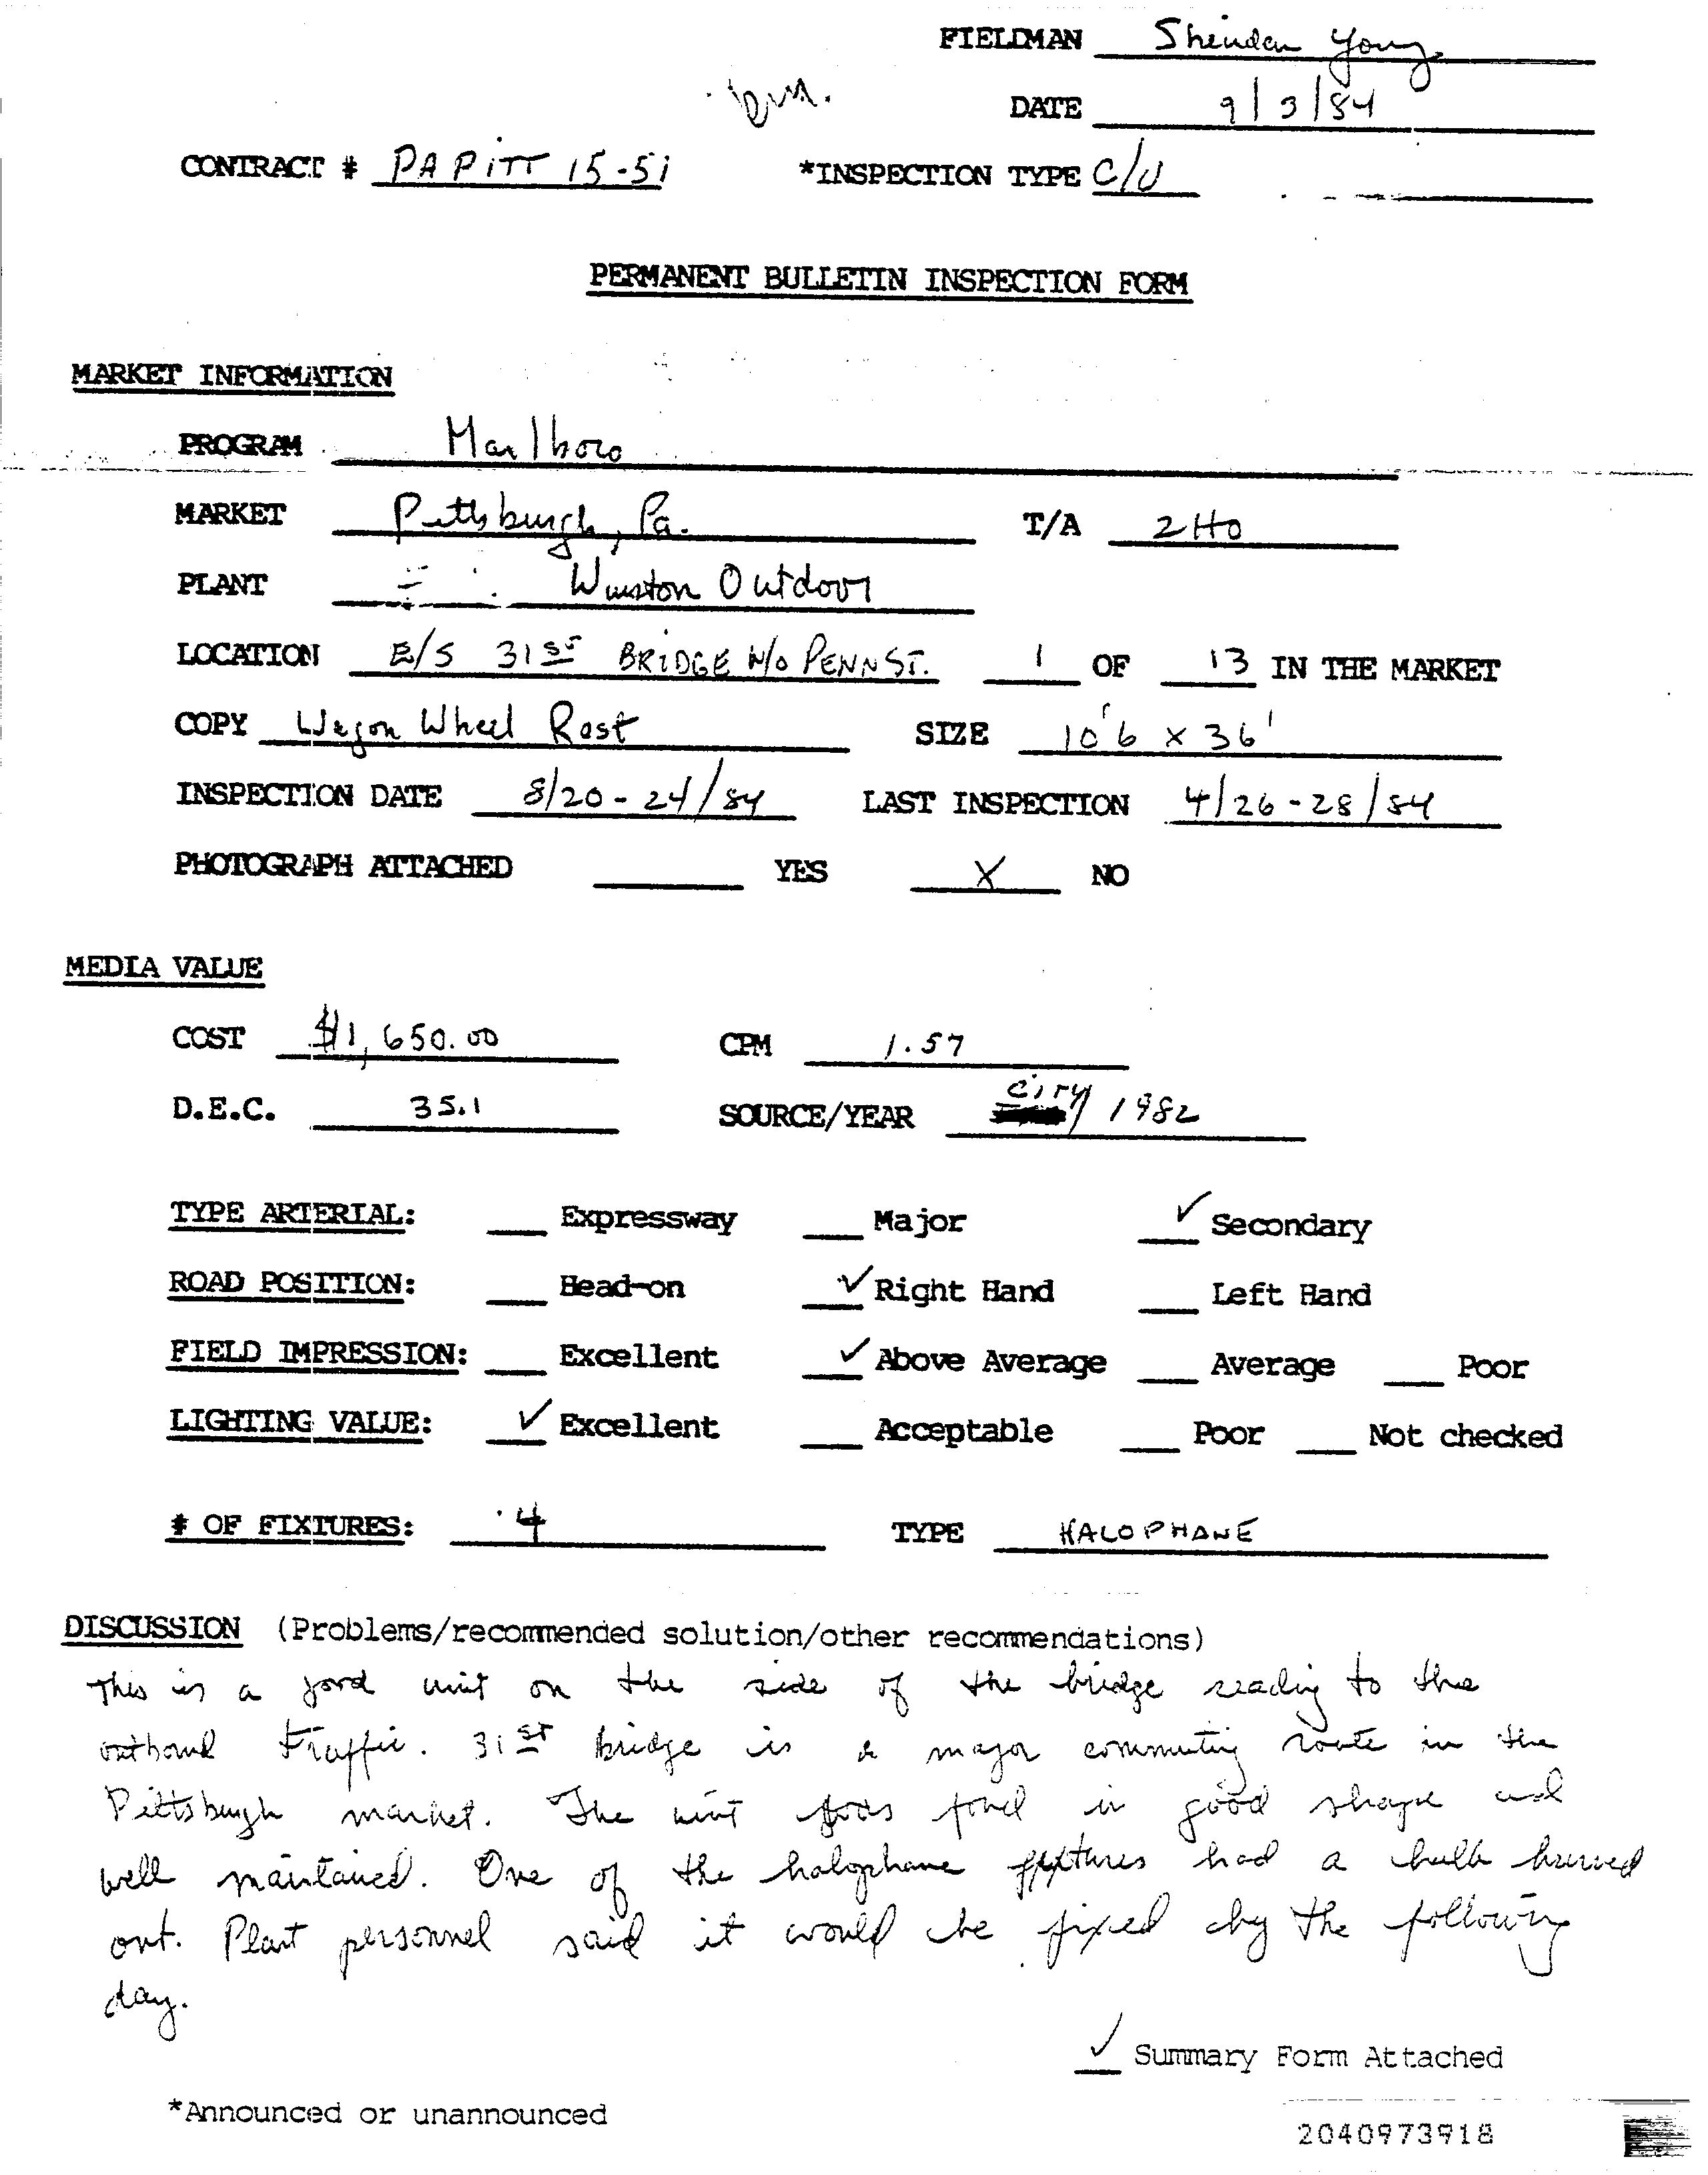 FIELDMAN Sheridan Young
DATE 9/3/84
CONTRACT # PA PITT 15-51 *INSPECTION TYPE C/U
PERMANENT BULLETIN INSPECTION FORM
MARKET INFORMATION
PROGRAM Marlboro
MARKET Pittsburgh, Pa. T/A 2HO
PLANT Winston Outdoor
LOCATION E/S 31st BRIDGE N/O PENN ST. 1 OF 13 IN THE MARKET
COPY Wagon Wheel Rest SIZE 10'6 x 36'
INSPECTION DATE 8/20-24/84 LAST INSPECTION 4/26-28/84
PHOTOGRAPH ATTACHED YES X NO
MEDIA VALUE
COST $1,650.00 CPM 1.57
D.E.C. 35.1 SOURCE/YEAR CITY/1982
TYPE ARTERIAL: Expressway Major ✓ Secondary
ROAD POSITION: Head-on ✓ Right Hand Left Hand
FIELD IMPRESSION: Excellent ✓ Above Average Average Poor
LIGHTING VALUE: ✓ Excellent Acceptable Poor Not checked
# OF FIXTURES: 4 TYPE HALOPHANE
DISCUSSION (Problems/recommended solution/other recommendations)
This is a good unit on the side of the bridge reading to the
outbound traffic. 31st bridge is a major commuting route in the
Pittsburgh market. The unit was found in good shape and
well maintained. One of the halophane fixtures had a bulb burned
out. Plant personnel said it would be fixed by the following
day.
✓ Summary Form Attached
*Announced or unannounced
2040973918